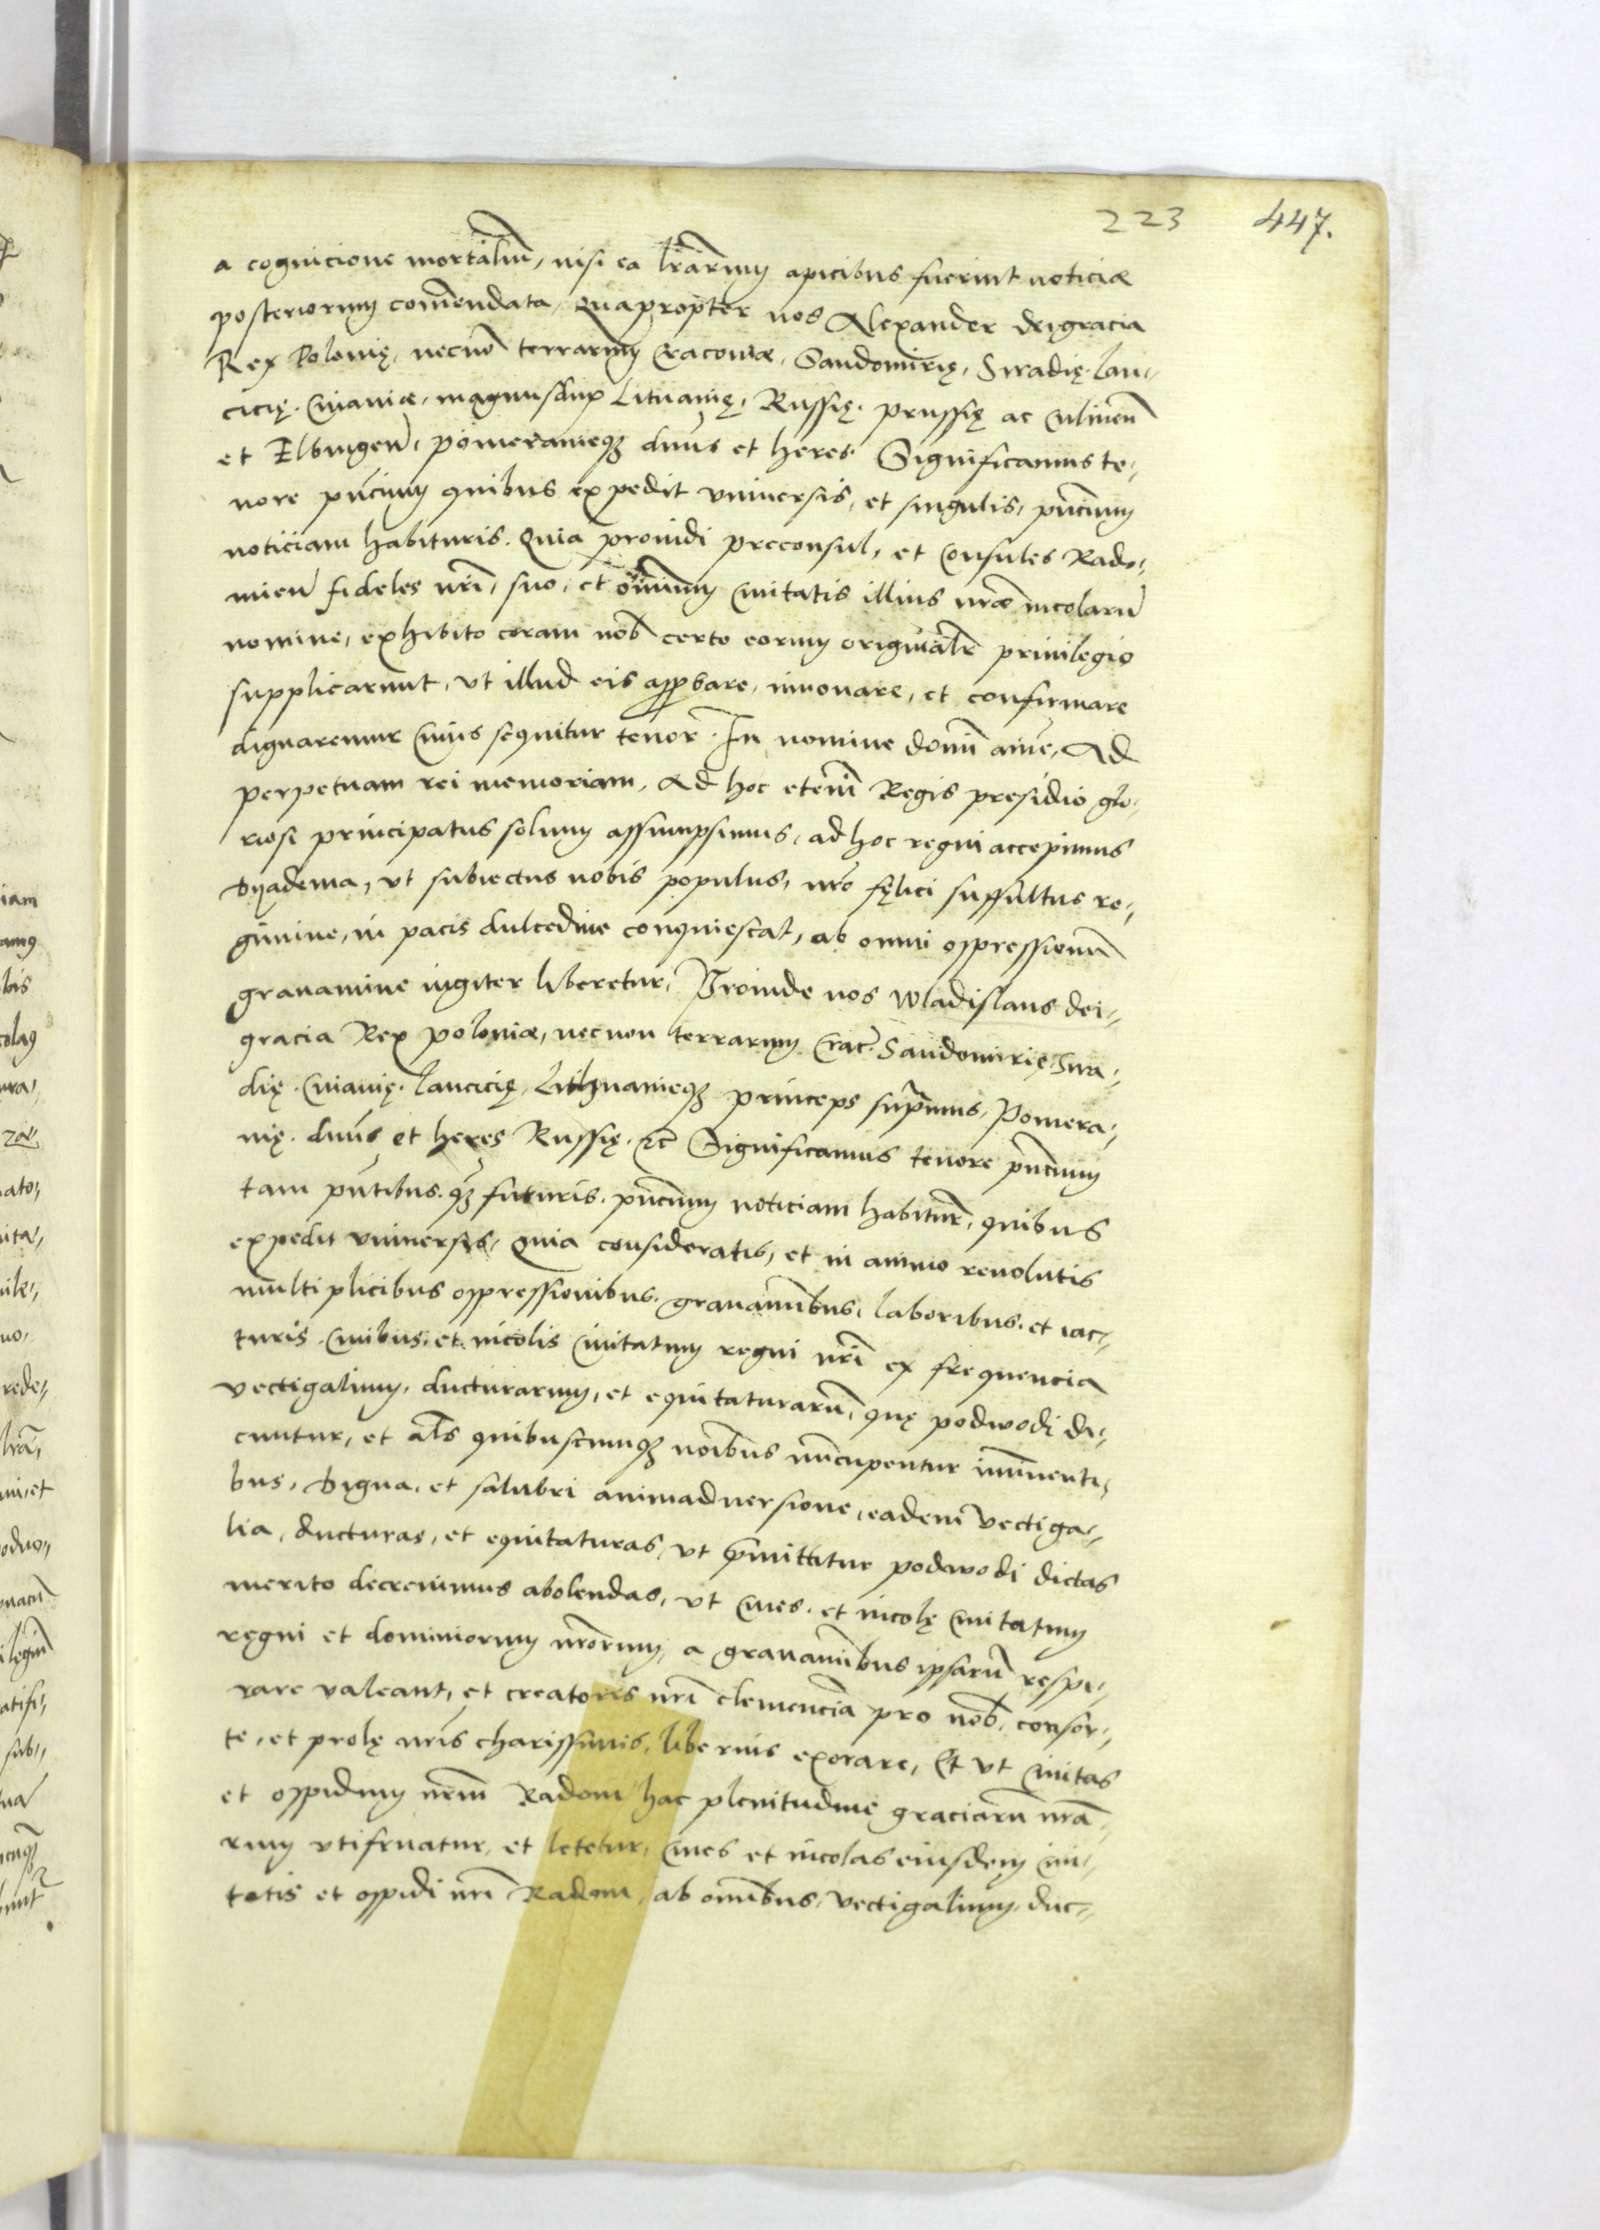 223 447.
a cognicione mortaliū, nisi ea lrārum apicibus fuerint noticiæ
posteriorum com̄endata, Quapropter nos Alexander dei gracia
Rex Polonię, necnō terrarum Cracouiæ, Sandomirię, Siradię, Lan-
cicię, Cuiauiæ, magnus dux Lituanię, Russię, prussię ac Culmen̄
et Elbingen̄, pomeranieq3 dn̄us et heres. Significamus te-
nore pn̄cium quibus expedit vniuersis, et singulis, pn̄cium
noticiam habituris. Quia prouidi preconsul, et Consules Rado-
mien̄ fideles nr̄i, suo, et om̄ium Ciuitatis illius nr̄æ incolarū
nomine, exhibito coram nob̄ certo eorum originali priuilegio
supplicarunt, vt illud eis approbare, innouare, et confirmare
dignaremur Cuius sequitur tenor. In nomine domi āmē, Ad
perpetuam rei memoriam, Ad hoc etenī Regis presidio glo-
riose principatus solium assumpsimus, ad hoc regni accepimus
dyadema, vt subiectus nobis populus, nrō fęlici suffultus re-
gimine, in pacis dulcedine conquiescat, ab omni oppressionū
grauamine iugiter liberetur, Proinde nos Wladislaus dei-
gracia Rex poloniæ, necnon terrarum Crac̄. Sandomirię, Sira-
dię. Cuiauię. Lancicię, Lithuanieq3 princeps supremus, Pomera-
nię. dn̄us et heres Russię. &c̄ Significamus tenore pn̄cium
tam pn̄tibus. q3 futuris. pn̄cium noticiam habitur̄, quibus
expedit vniuersis, Quia consideratis, et in animo reuolutis
multiplicibus oppressionibus. grauamībus, laboribus. et iac-
turis. Ciuibus. et incolis Ciuitatum regni nr̄i ex frequencia
vectigalium, ducturarum, et equitaturarū, quę podwodi di-
cuntur, et al̄s quibuscunq3 noībus nūcupentur imīnenti-
bus, Digna, et salubri animaduersione, eadem vectiga-
lia, ducturas, et equitaturas, vt p̄mittitur podwodi dictas
merito decreuimus abolendas, vt Ciues. et incolę Ciuitatum
regni et dominiorum nr̄orum, a grauamībus ipsarū respi-
rare valeant, et creatoris nr̄i clemenciā pro nob̄. consor-
te, et prolę nr̄is charissimis, liberius exorare, Et vt Ciuitas
et oppidum nr̄um Radom hac plenitudine graciarū nr̄a-
rum vtifruatur, et letetur, Ciues et incolas eiusdem Ciui-
tatis et oppidi nr̄i Radom, ab omībus, vectigalium, duc-